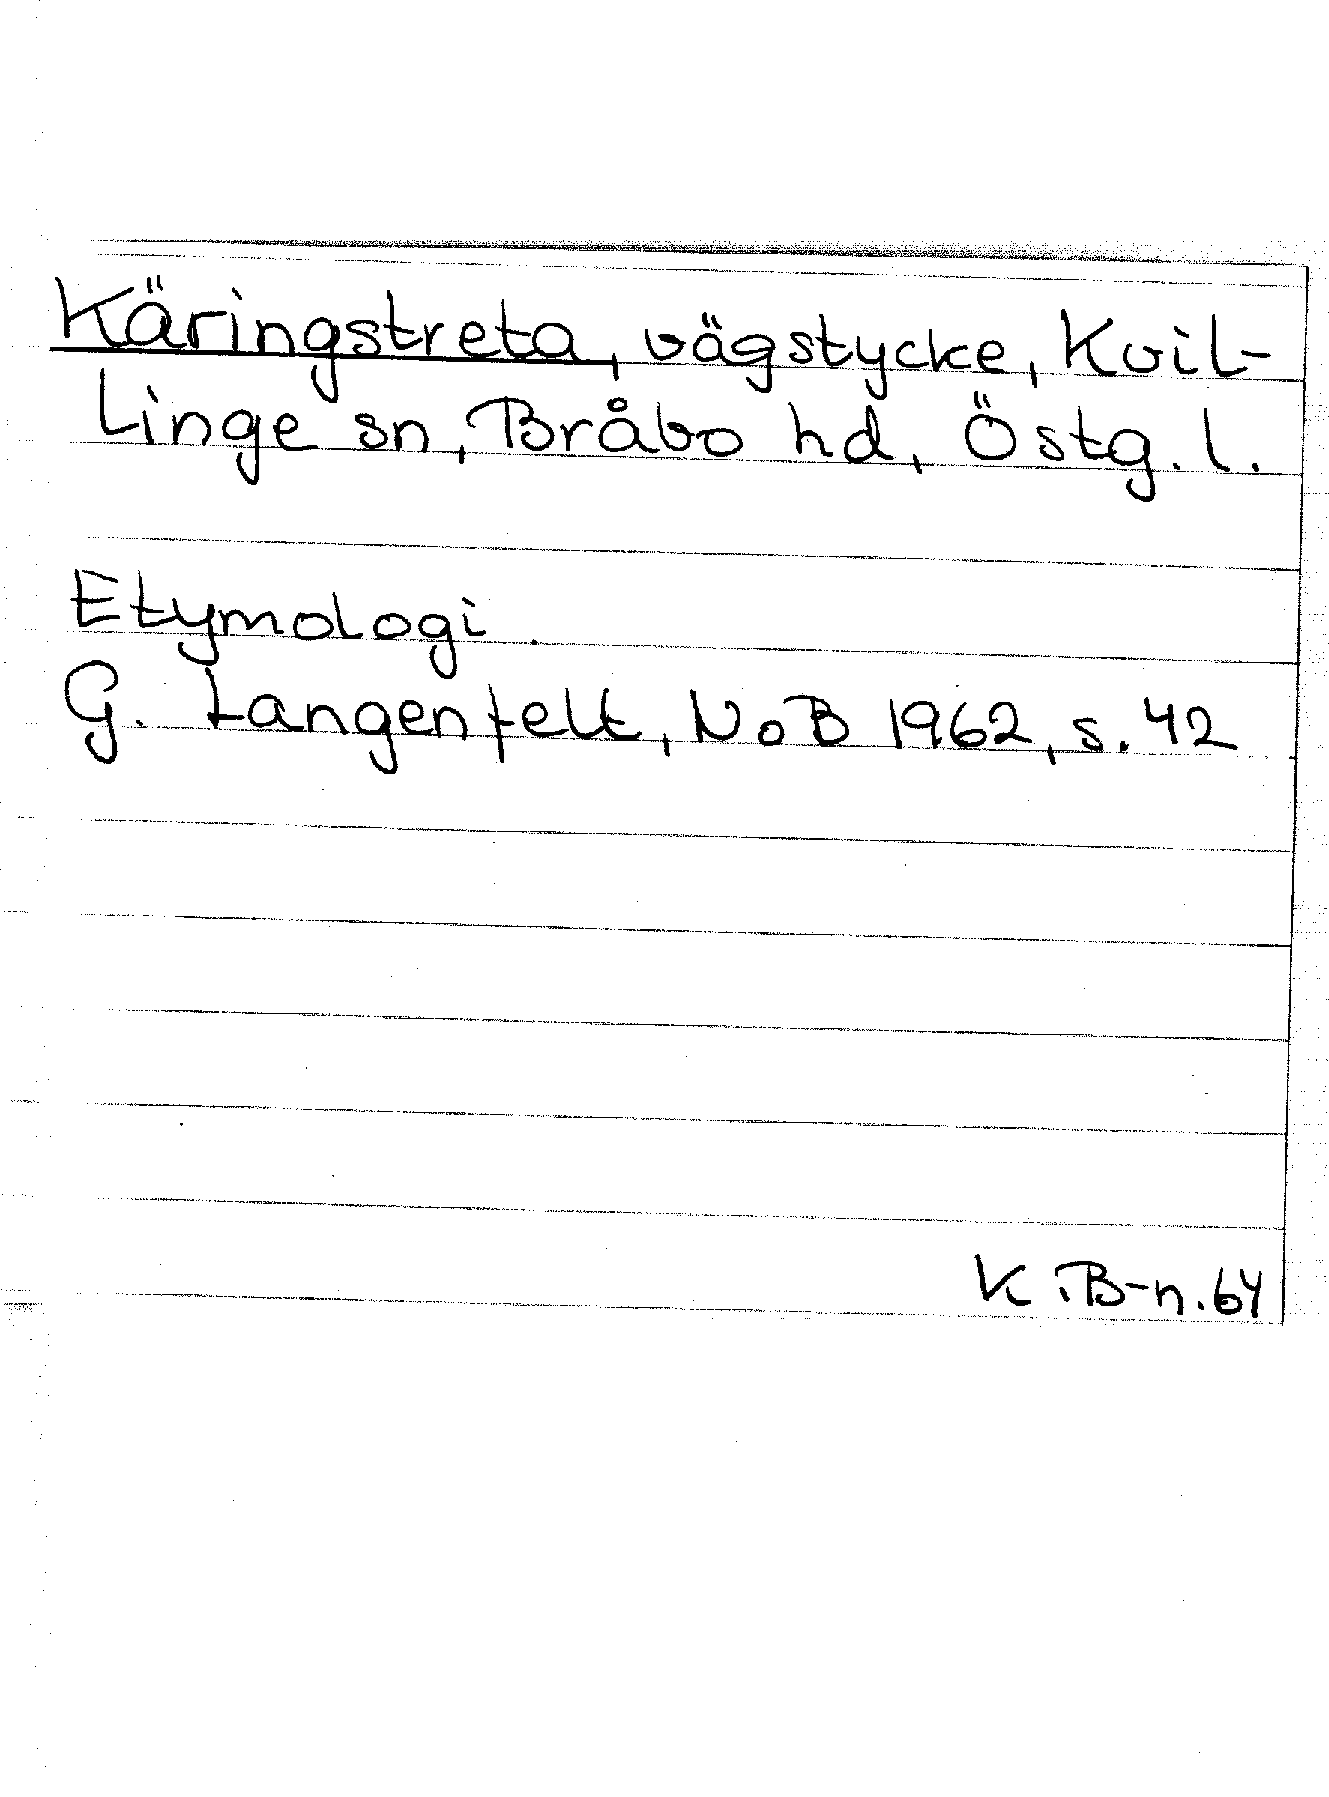 Käringstreta, vägstycke, Kvil-
linge sn, Bråbo hd, Östg. l.
Etymologi.
G. Langenfelt, NoB 1962, s. 42
K.B-n.64